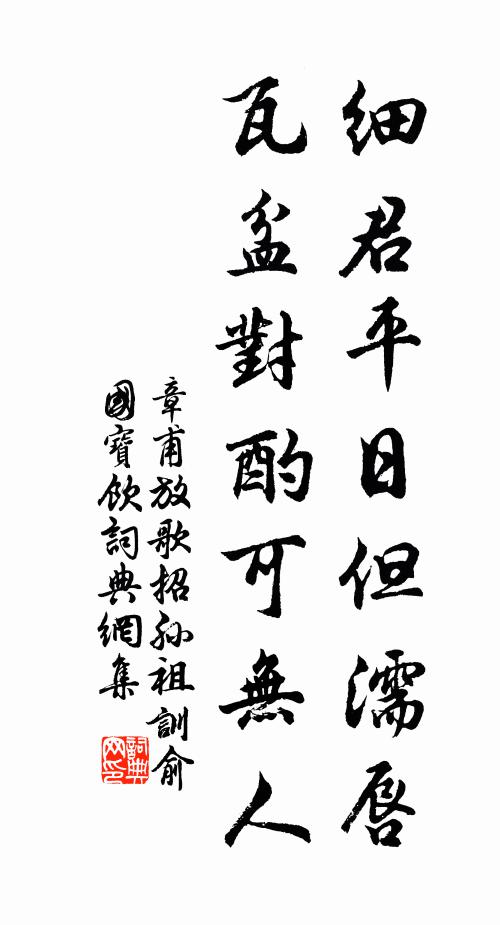 細君平日但濡唇
瓦盆對酌可無人
章甫放歌招孙祖訓俞
國寶飲詞典網集
詞典
网印